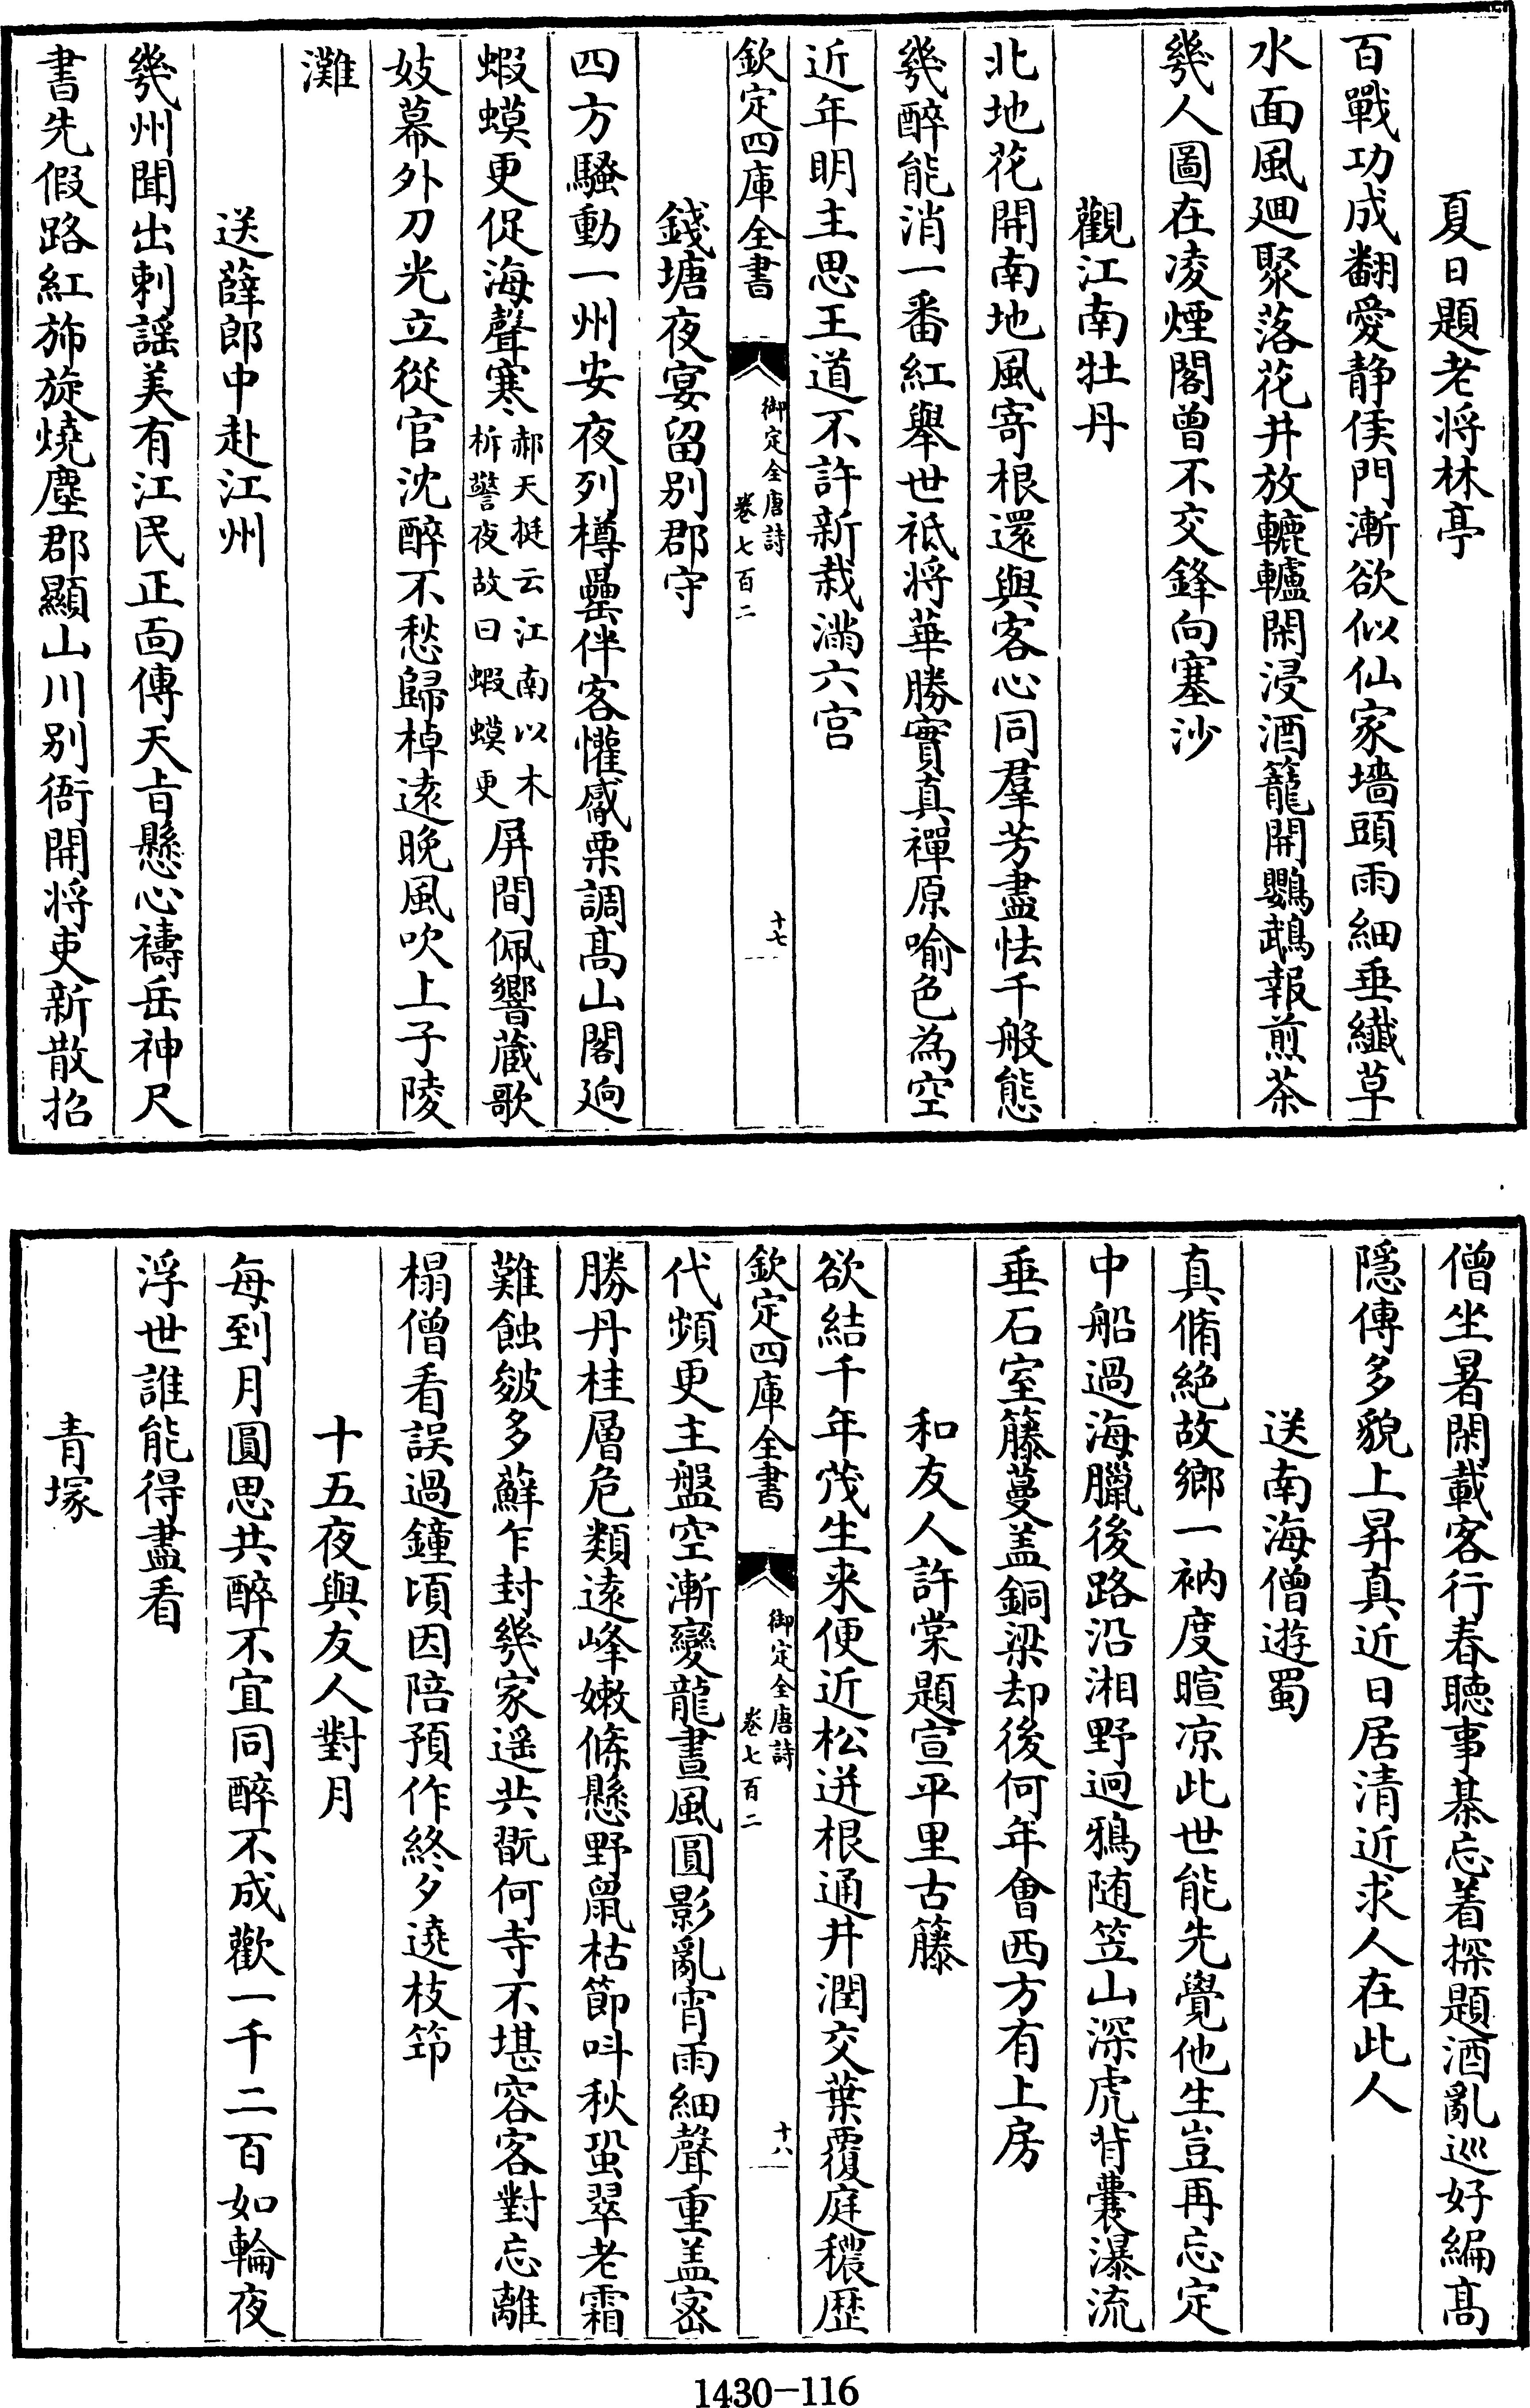 夏日題老将林亭
百戰功成翻愛静侯門漸欲似仙家墻頭雨細垂纎草
水面風廻聚落花井放轆轤閑浸酒籠開鸚鵡報煎茶
幾人圖在凌煙閣曾不交鋒向塞沙
觀江南牡丹
北地花開南地風寄根還與客心同羣芳盡怯千般態
幾醉能消一番紅舉世祗将華勝實真禪原喻色為空
近年明主思王道不許新栽滿六宫
欽定四庫全書
御定全唐詩
卷七百二
十七
錢塘夜宴留别郡守
四方騷動一州安夜列樽罍伴客懽觱栗調髙山閣逈
蝦蟆更促海聲寒郝天挺云江南以木柝警夜故曰蝦蟆更屏間佩響藏歌
妓幕外刀光立從官沈醉不愁歸棹逺晚風吹上子陵
灘
送薛郎中赴江州
幾州聞出刺謡美有江民正靣傳天㫖懸心禱岳神尺
書先假路紅斾旋燒塵郡顯山川别衙開将吏新散招
僧坐暑閑載客行春聴事棊忘着探題酒亂巡好編髙
隱傳多貌上昇真近日居清近求人在此人
送南海僧遊蜀
真脩絶故鄉一衲度暄凉此世能先覺他生豈再忘定
中船過海臘後路沿湘野迥鴉随笠山深虎背囊瀑流
垂石室籐蔓盖銅梁却後何年會西方有上房
和友人許棠題宣平里古籐
欲結千年茂生来便近松迸根通井潤交葉覆庭穠歴
欽定四庫全書
御定全唐詩
卷七百二
十八
代頻更主盤空漸變龍晝風圓影亂宵雨細聲重盖宻
勝丹桂層危類逺峰嫩條懸野鼠枯節呌秋蛩翠老霜
難蝕皴多蘚乍封幾家遥共翫何寺不堪容客對忘離
榻僧看誤過鐘頃因陪預作終夕遶枝笻
十五夜與友人對月
每到月圓思共醉不宜同醉不成歡一千二百如輪夜
浮世誰能得盡看
青塚
1430-116